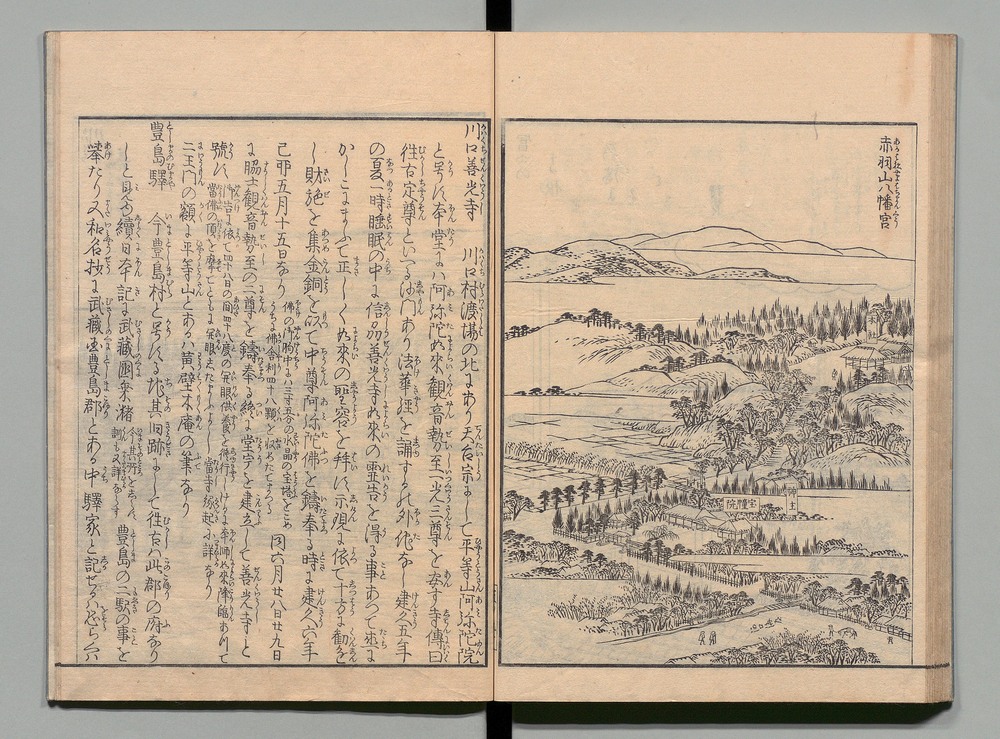 赤羽山八幡宮
神主
宝幢院
川口善光寺　川口村渡場の北にあり天台宗にして平等山阿弥陀院
と号に本堂には阿弥陀如来観音勢至一光三尊を安す寺傳曰
往古定尊といへる沙門あり法華経を誦するの外他なし建久五年
の夏一時睡眠の中に信州善光寺如来の霊告を得る事あつて遂に
かしこにまふて正しく如来の聖容を拝に示現に依て十方に勧を
し財絶を集金銅を以て中尊阿弥陀佛を鋳奉る時に建久六年
己卯五月十五日なり
佛の御胸中には三寸五分の水晶の宝塔をこめ
うちに佛舎利四十八顆を収めたてまつる
同六月廿八日廿九日
に脇士観音勢至の二尊を鋳奉る終に堂宇を建立して善光寺と
號に
二王門の額に平等山とあるハ黄檗木庵の筆なり
豊島驛　今豊島村と号に地其旧跡にして往古は此郡の府なり
しと見ゆ續日本記に武蔵國乗潴
豊島の二駅の事を
挙たり又和名抄に武蔵国豊島郡とある中驛家と記せるハ